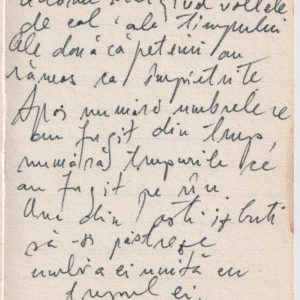 de cal ale timpului
Ale două căpetenii au
rămas ca împietrite
Apoi numără umbrele ce
au fugit din trup,
numără trupurile ce
au fugit pe rîu.
Una din
să-și păstreze
umbra ei unită cu
trupul ei.